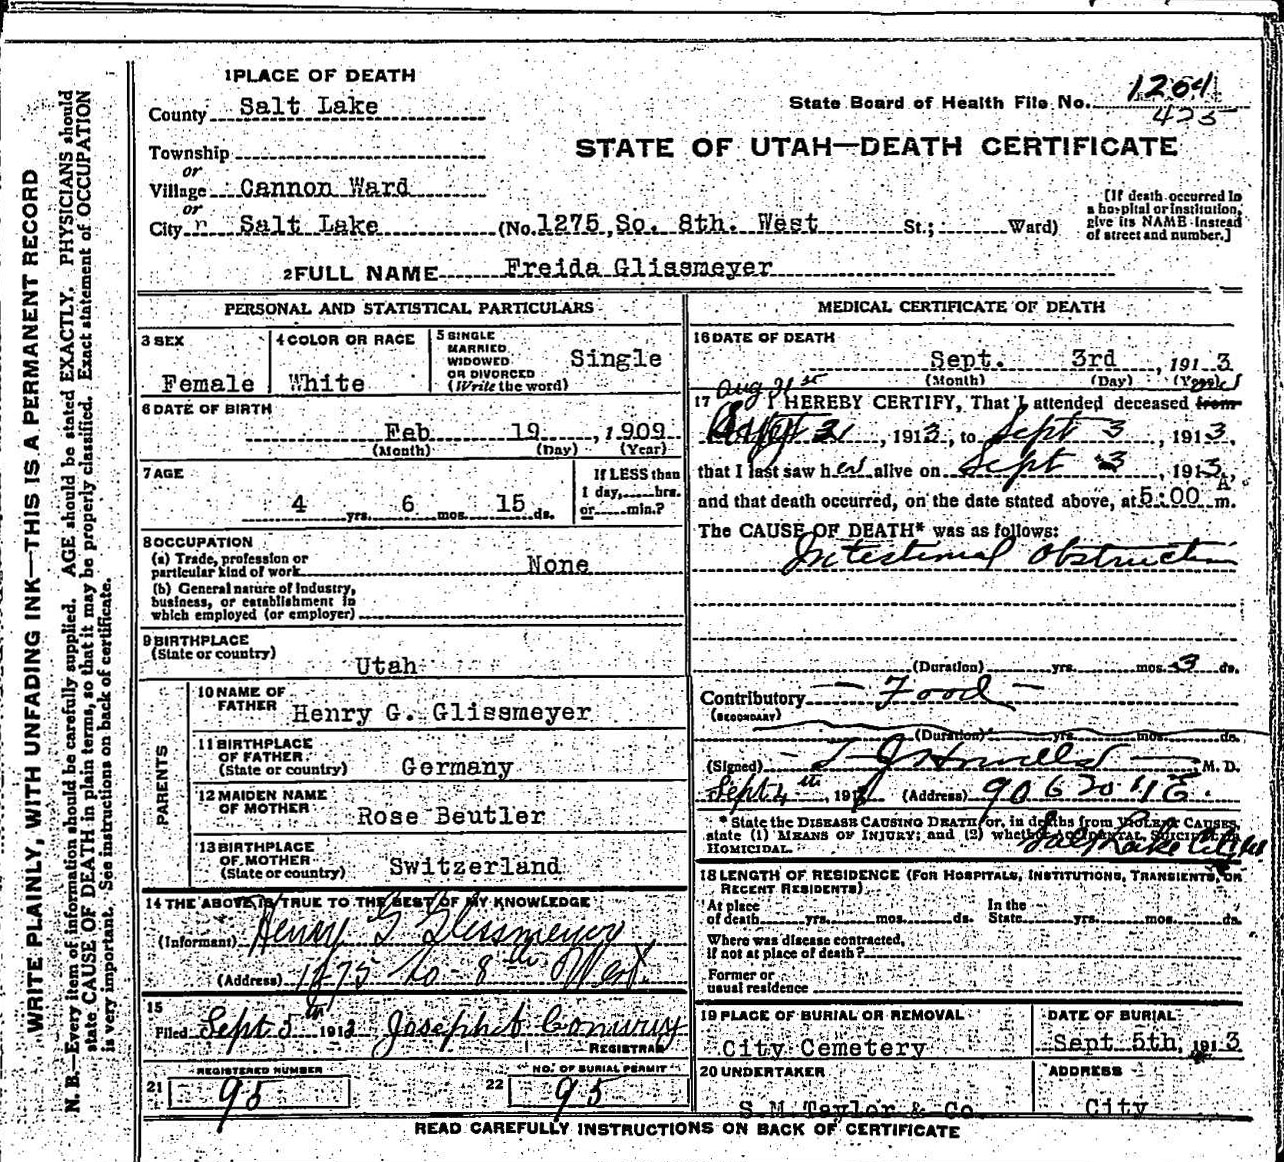 1 PLACE OF DEATH
County Salt Lake
State Board of Health File No. 1264
425
Township
or
Village Cannon Ward
or
City Salt Lake (No. 1275 So. 8th. West St.; Ward)
STATE OF UTAH—DEATH CERTIFICATE
[If death occurred in
a hospital or institution,
give its NAME instead
of street and number.]
2 FULL NAME Freida Glissmeyer
PERSONAL AND STATISTICAL PARTICULARS
3 SEX
Female
4 COLOR OR RACE
White
5 SINGLE
MARRIED
WIDOWED
OR DIVORCED
(Write the word)
Single
6 DATE OF BIRTH
Feb 19, 1909
(Month) (Day) (Year)
7 AGE
4 yrs. 6 mos. 15 ds.
If LESS than
1 day, hrs.
or min.?
8 OCCUPATION
(a) Trade, profession or
particular kind of work None
(b) General nature of industry,
business, or establishment in
which employed (or employer)
9 BIRTHPLACE
(State or country)
Utah
PARENTS
10 NAME OF
FATHER Henry G. Glissmeyer
11 BIRTHPLACE
OF FATHER
(State or country) Germany
12 MAIDEN NAME
OF MOTHER Rose Beutler
13 BIRTHPLACE
OF MOTHER
(State or country) Switzerland
14 THE ABOVE IS TRUE TO THE BEST OF MY KNOWLEDGE
(Informant) Henry G Glissmeyer
(Address) 1275 So - 8th West
15
Filed Sept 5th 1913 Joseph Conway
REGISTRAR
REGISTERED NUMBER
21 95
NO. OF BURIAL PERMIT
22 95
MEDICAL CERTIFICATE OF DEATH
16 DATE OF DEATH
Sept. 3rd, 1913
(Month) (Day) (Year)
Aug 31st and
17 I HEREBY CERTIFY, That I attended deceased from
31, 1913, to Sept 3, 1913,
that I last saw her alive on Sept 3, 1913,
and that death occurred, on the date stated above, at 5:00 A. m.
The CAUSE OF DEATH* was as follows:
Intestinal Obstruction
(Duration) yrs. mos. 3 ds.
Contributory — Food —
(SECONDARY)
(Duration) yrs. mos. ds.
(Signed) M. D.
Sept 4th, 191 (Address) 906 20 11 E.
Salt Lake City
* State the DISEASE CAUSING DEATH or, in deaths from VIOLENT CAUSES,
state (1) MEANS OF INJURY; and (2) whether ACCIDENTAL, SUICIDAL or
HOMICIDAL.
18 LENGTH OF RESIDENCE (FOR HOSPITALS, INSTITUTIONS, TRANSIENTS, OR
RECENT RESIDENTS)
At place
of death yrs. mos. ds.
In the
State yrs. mos. ds.
Where was disease contracted,
if not at place of death?
Former or
usual residence
19 PLACE OF BURIAL OR REMOVAL
City Cemetery
DATE OF BURIAL
Sept 5th, 1913
20 UNDERTAKER
S.M. Taylor & Co.
ADDRESS
City
READ CAREFULLY INSTRUCTIONS ON BACK OF CERTIFICATE
WRITE PLAINLY, WITH UNFADING INK—THIS IS A PERMANENT RECORD
N. B.—Every item of information should be carefully supplied. AGE should be stated EXACTLY. PHYSICIANS should
state CAUSE OF DEATH in plain terms, so that it may be properly classified. Exact statement of OCCUPATION
is very important. See instructions on back of certificate.